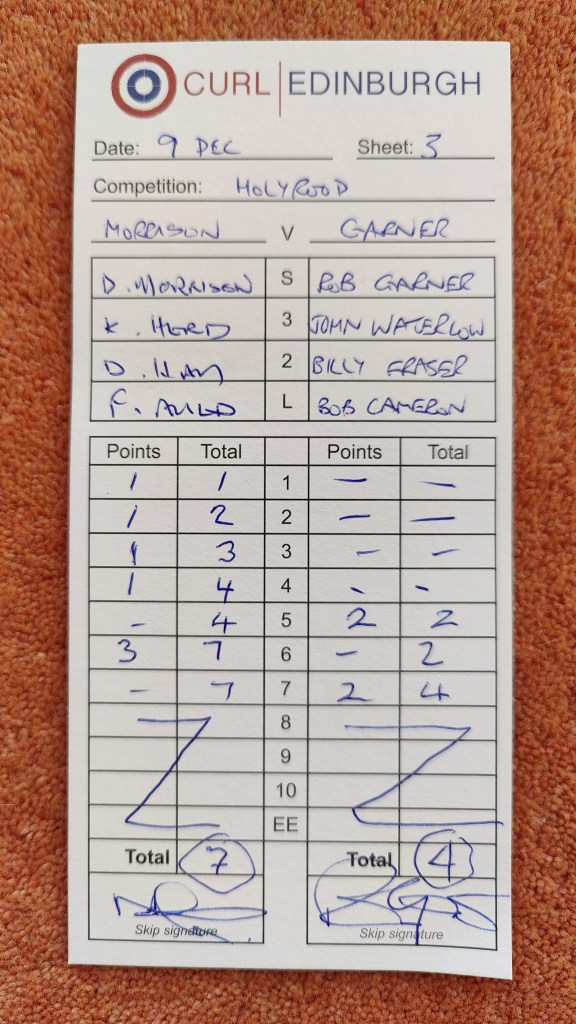 CURL | EDINBURGH
Date: 9 DEC Sheet: 3
Competition: HOLYROOD
MORRISON V GARNER
D. MORRISON S ROB GARNER
K. HERD 3 JOHN WATERLOW
D. HAY 2 BILLY FRASER
F. L BOB CAMERON
Points Total Points Total
1 1 1 — —
1 2 2 — —
1 3 3 – –
1 4 4 - -
- 4 5 2 2
3 7 6 – 2
- 7 7 2 4
8
9
10
EE
Total 7 Total 4
Skip signature Skip signature